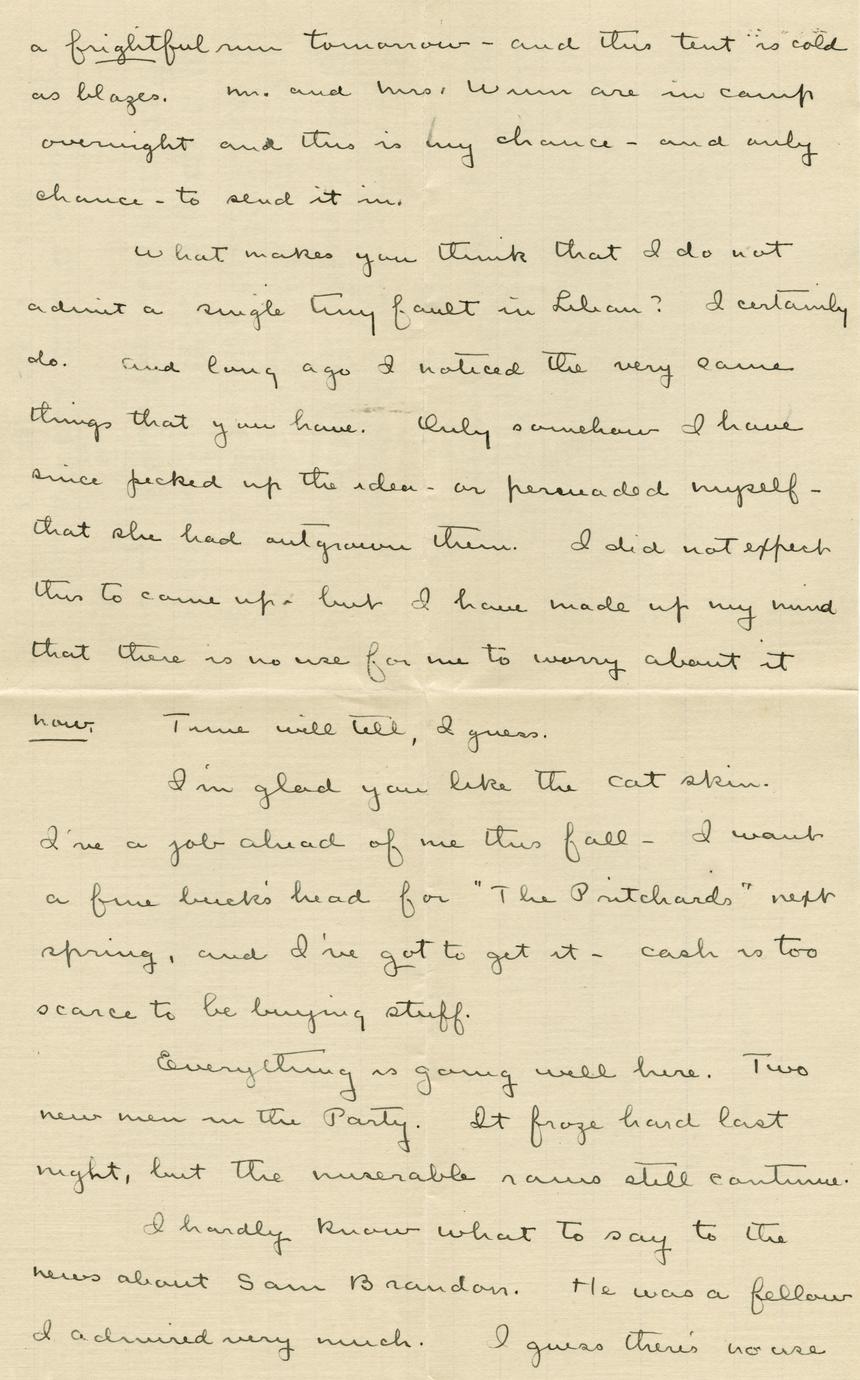 a frightful run tomorrow - and this tent is cold
as blazes. Mr. and Mrs. Winn are in camp
overnight and this is my chance - and only
chance - to send it in.
What makes you think that I do not
admit a single tiny fault in Lilian? I certainly
do. And long ago I noticed the very same
things that you have. Only somehow I have
since picked up the idea - or persuaded myself -
that she had outgrown them. I did not expect
this to come up - but I have made up my mind
that there is no use for me to worry about it
now. Time will tell, I guess.
I'm glad you like the cat skin.
I've a job ahead of me this fall - I want
a fine buck's head for "The Pritchards" next
spring, and I've got to get it - cash is too
scarce to be buying stuff.
Everything is going well here. Two
new men in the Party. It froze hard last
night, but the miserable rains still continue.
I hardly know what to say to the
news about Sam Brandon. He was a fellow
I admired very much. I guess there's no use